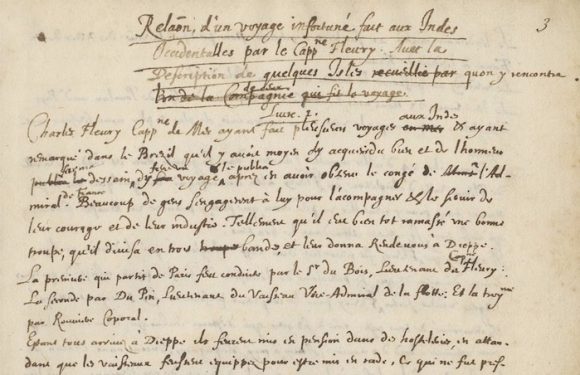 3
Relaõn, d'un voyage infortuné fait aux Indes
Occidentalles par le Capp.ne Fleury. Avec la
Description de quelques Isles recueillie par qu'on y rencontra
l'un de la Compagnie de ceux qui fit le voyage.
Livre. 1.
aux Inde
Charles Fleury Capp.ne de Mer ayant fait plusieurs voyages en mer & ayant
remarqué dans le Brezil qu'il y avoit moyen d'y acquerir du bien et de l'honneur
dessain, d'y voyage, apres en avoir obtenu le congé de l'Ad-
de France
miral. Beaucoup de gens s'engagerent à luy pour l'acompagner & le servir de
leur courage et de leur industrie. Tellement qu'il eut bien tot ramassé une bonne
troupe, qu'il divisa en trois troupe bande, et leur donna Rendevous a Dieppe.
La premiere qui partit de Paris feu conduite par le Sr du Bois, Lieutenant du Cap Fleury:
La seconde par Du Pin, Lieutenant du Vaisseau Vice-Admiral de la flotte, Et la troyme
par Coporal.
Estant tous arrivez à Dieppe ils feurent mis en pension dans des hosteleries, en atten-
dant que les vaisseaux feussent equippez pour estre mis en rade, Ce qui ne fut pres-